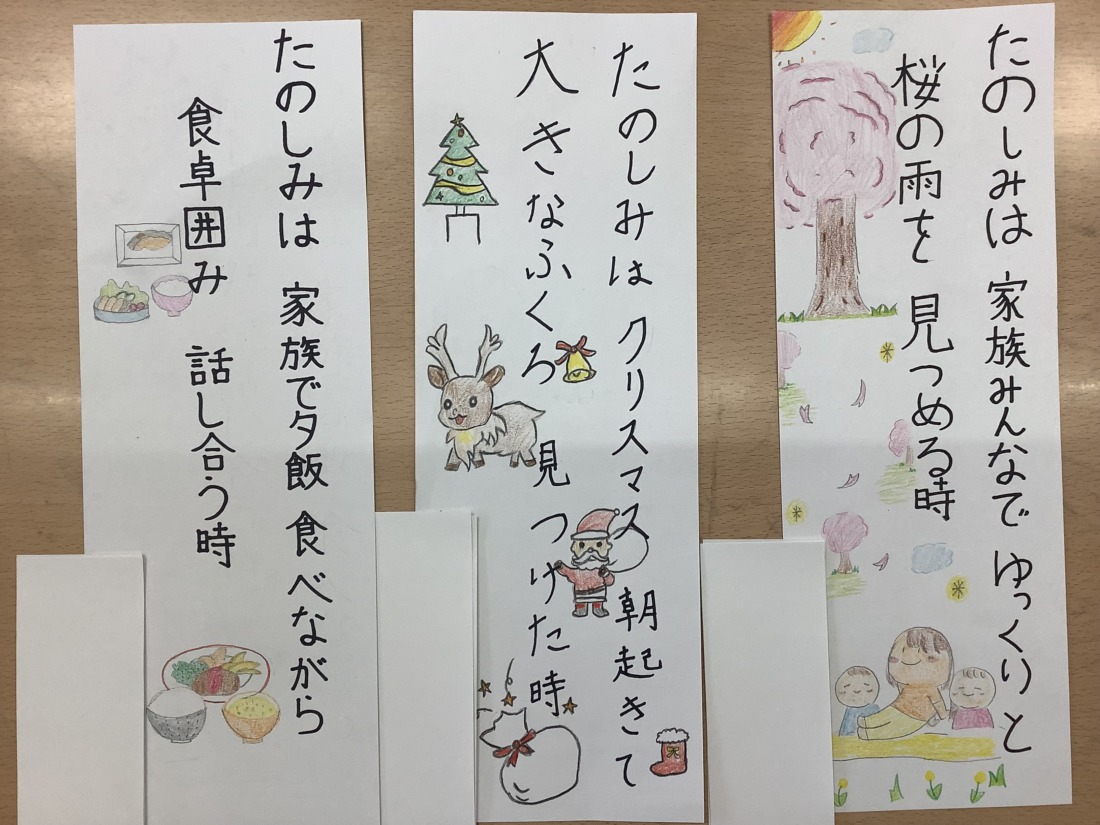 たのしみは 家族みんなで ゆっくりと
桜の雨を 見つめる時
たのしみは クリスマス 朝起きて
大きなふくろ 見つけた時
たのしみは 家族で夕飯 食べながら
食卓囲み 話し合う時